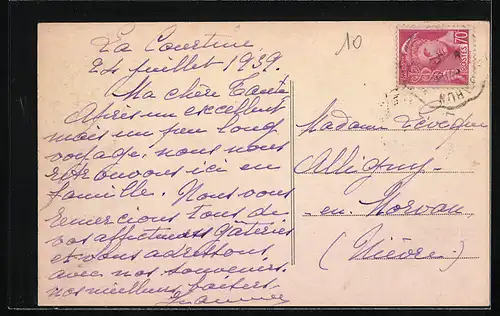 10
La Courtine
24 juillet 1939.
Ma chère Tante
Après un excellent
mais un peu long
voyage, nous nous
retrouvons ici en
famille. Nous vous
remercions tous de
vos affectueuses gâteries
et vous adressons
avec nos souvenirs,
nos meilleurs baisers
70
POSTES
Madame Lévêque
Alligny-
en-Morvan
(Nièvre)